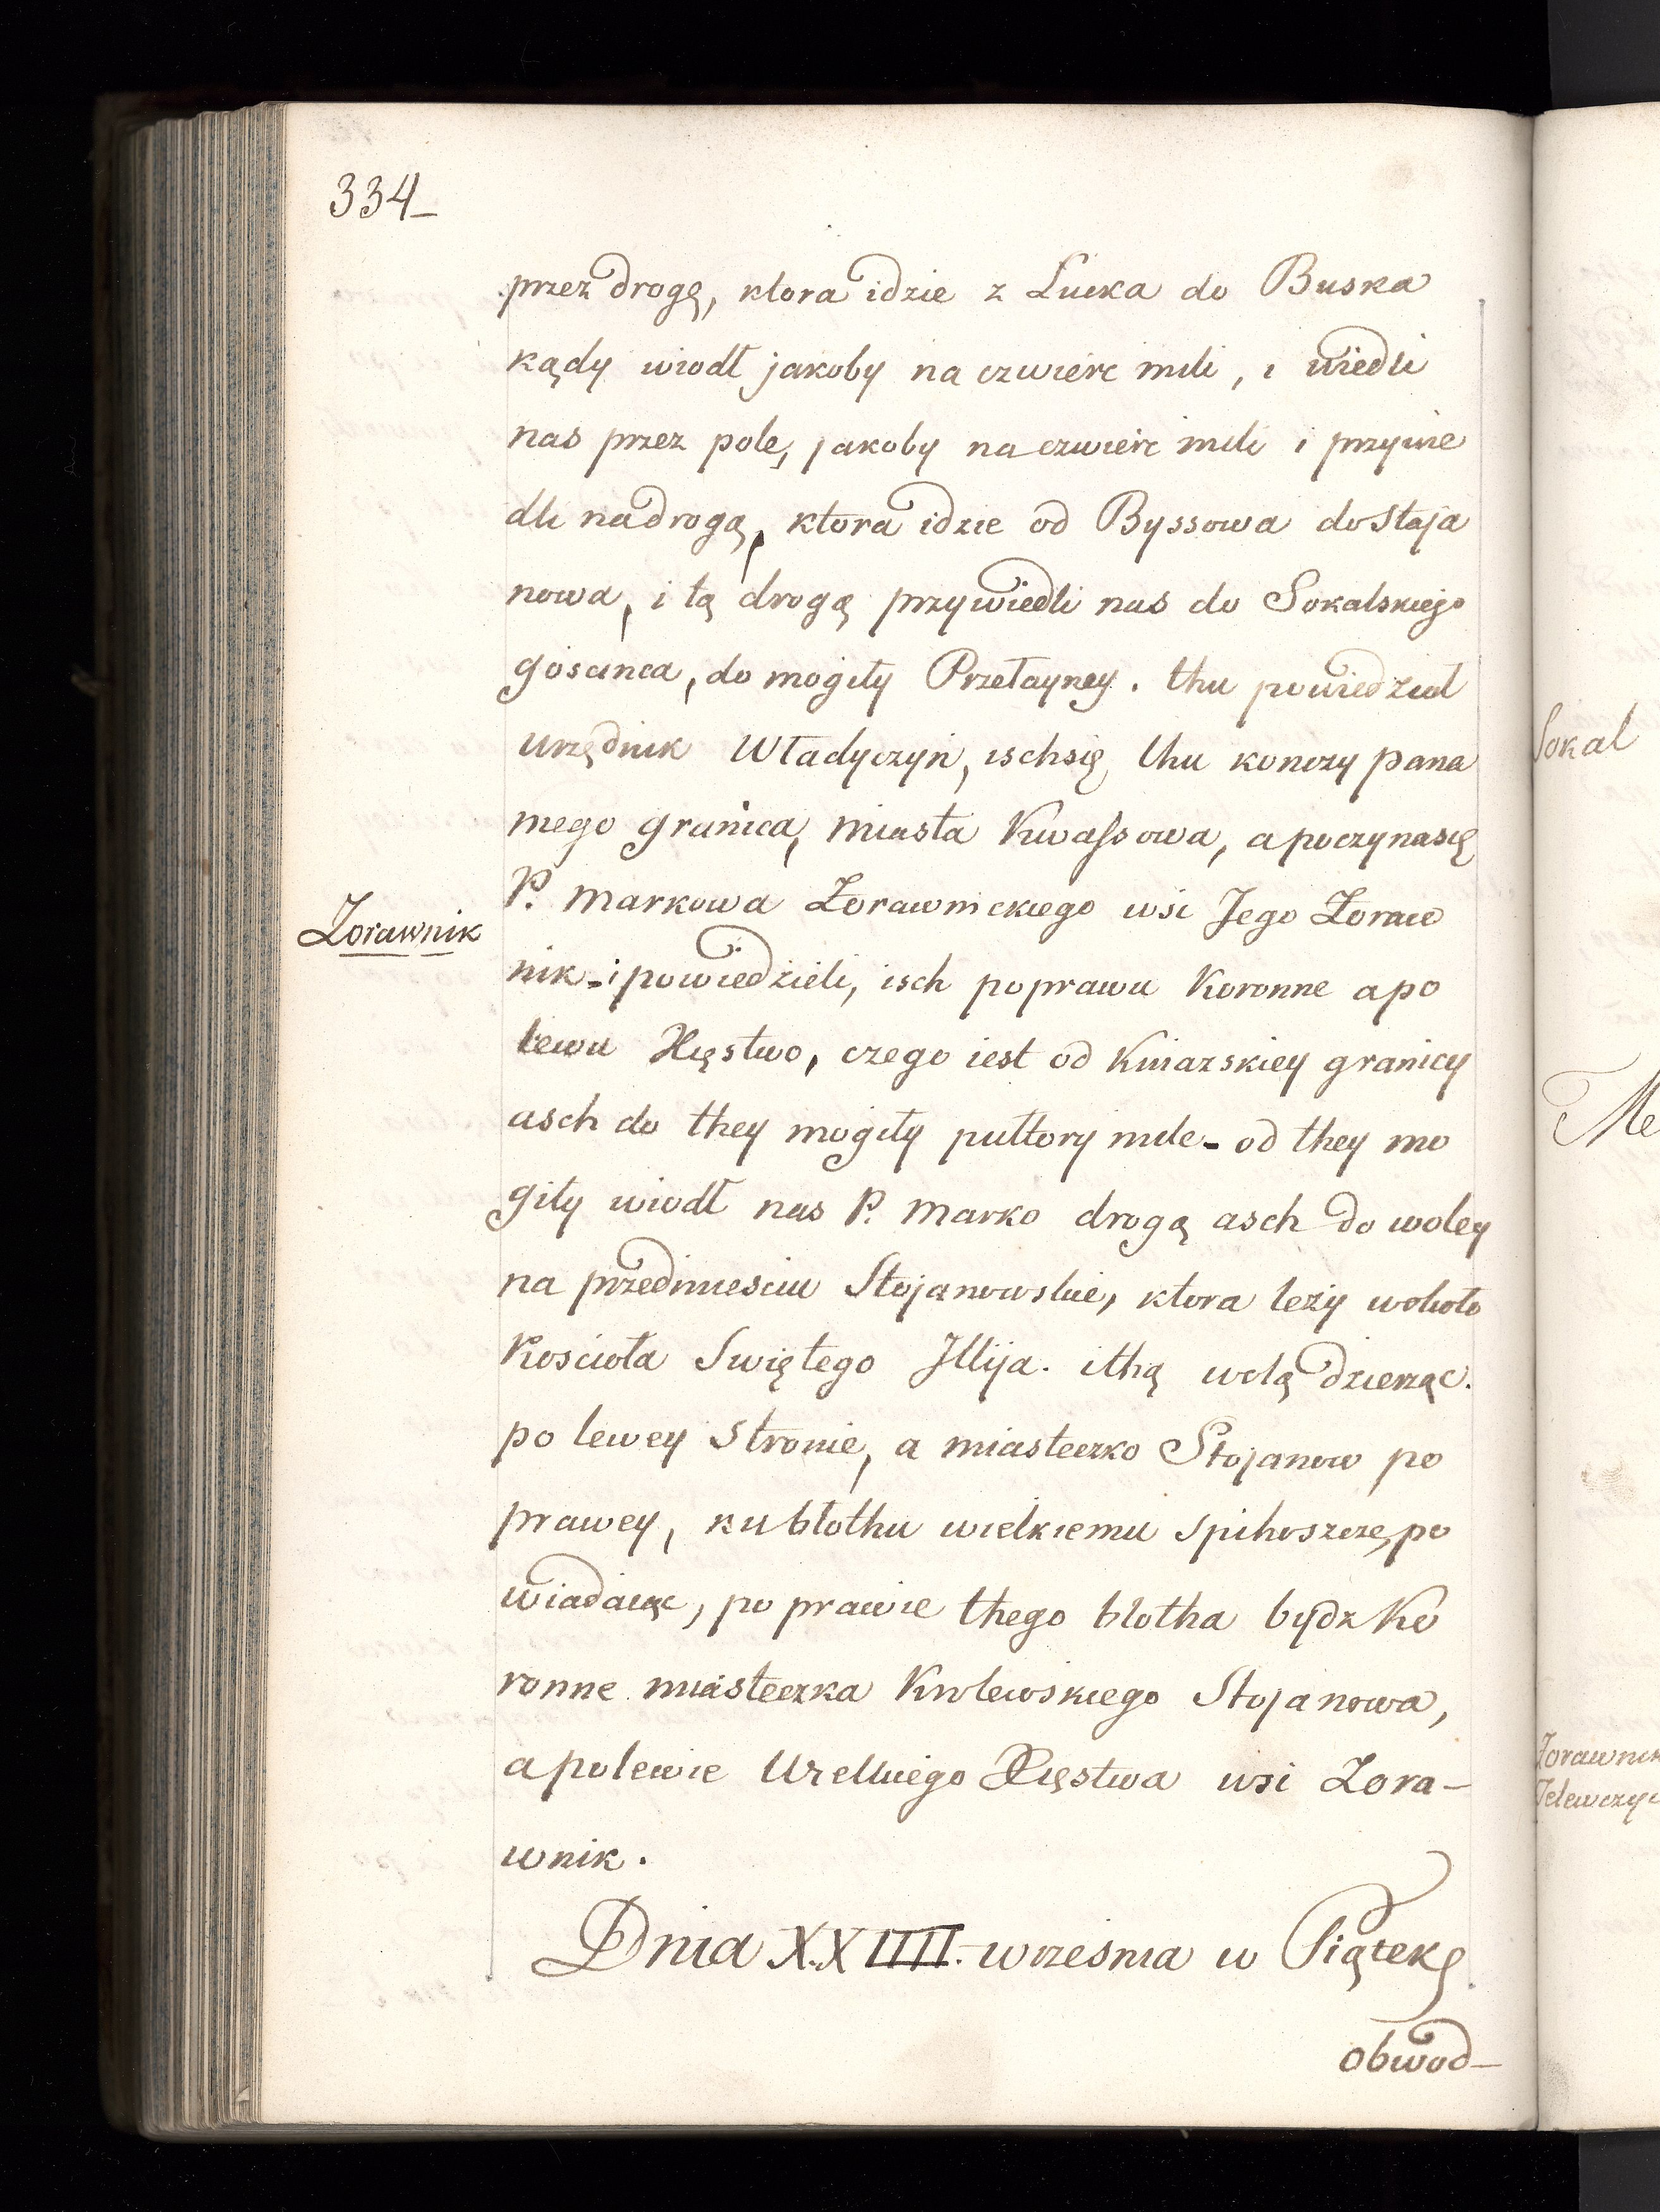 334_
przez drogę, ktora idzie z Lucka do Buska
kądy wiodł jakoby na czwierc mili, i wiedli
nas przez pole, jakoby na czwierc mili i przywie
dli na drogą, ktora idzie od Byssowa do Staja
nowa, i tą drogą przywiedli nas do Sokalskiego
goscinca, do mogiły Przełayney. thu powiedział
urzędnik Władyczyn, isch się thu konczy pana
mego granica, miasta Kwassowa, a poczyna się
P. Markowa Zorawnickiego wsi Jego Zoraw
Zorawnik
nik - i powiedzieli, isch po prawu Koronne a po
lewu Xięstwo, czego iest od Kniazskiey granicy
asch do they mogiły pułtory mile - od they mo
giły wiodł nas P. Marko drogą asch do woley
na przedmiesciu Stojanowskie, ktora leży wokoło
Kościoła Swiętego Illija. i thą wolą dzierząc.
po lewey stronie, a miasteczko Stojanow po
prawey, ku błothu wielkiemu Spihoszcze, po
wiadaiąc, po prawie thego błotha bydz Ko
ronne miasteczka Krolewskiego Stojanowa,
a po lewie Wielkiego Xięstwa wsi Zora-
wnik.
Dnia X.X IIII. wrzesnia w Piątek
obwod-
Sokal
Me
Zorawnik
Telewczyc